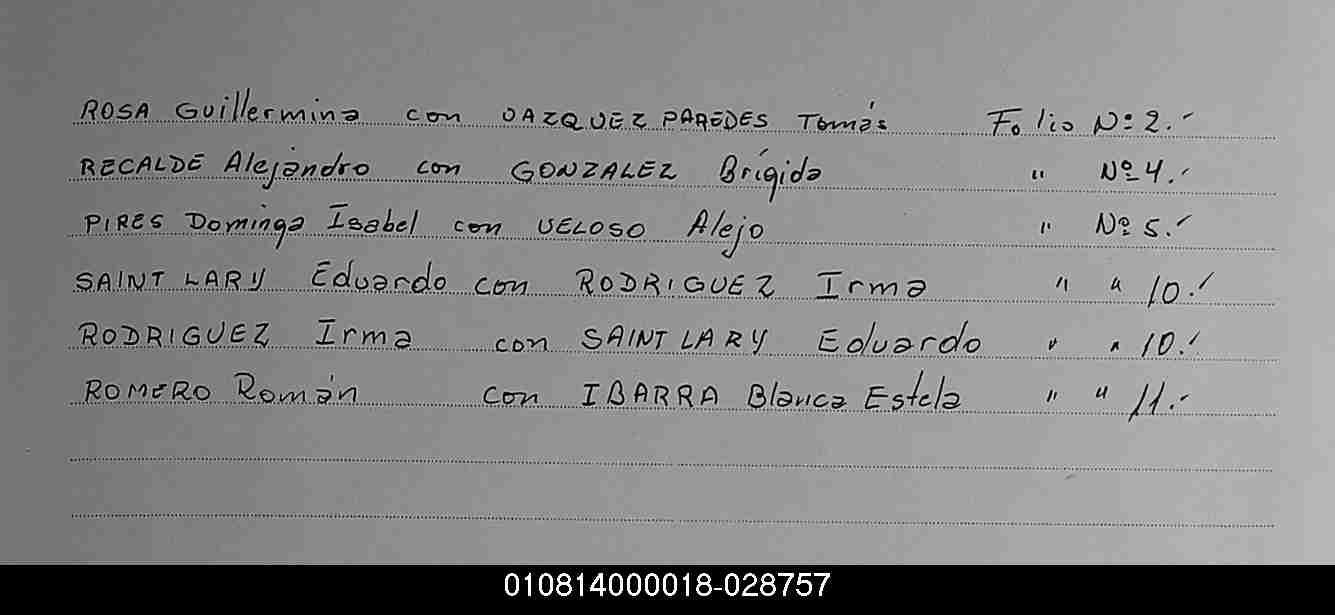 ROSA Guillermina con VAZQUEZ PAREDES Tomás Folio Nº 2.-
RECALDE Alejandro con GONZALEZ Brígida " Nº 4.-
PIRES Dominga Isabel con VELOSO Alejo " Nº 5.-
SAINT LARY Eduardo con RODRIGUEZ Irma " " 10.-
RODRIGUEZ Irma con SAINT LARY Eduardo " " 10.-
ROMERO Román con IBARRA Blanca Estela " " 11.-
010814000018-028757